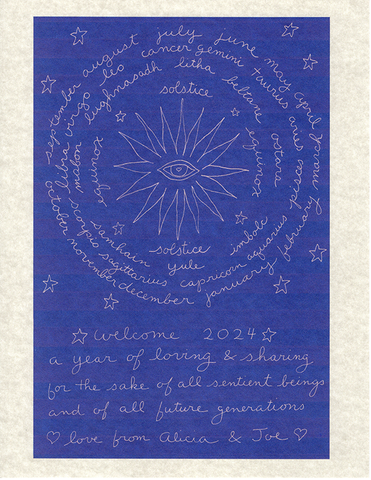 september august july june may april march
libra virgo leo cancer gemini taurus aries pisces
mabon lughnasadh litha beltane ostara
equinox solstice equinox
solstice
samhain yule imbolc
scorpio sagittarius capricorn aquarius
october november december january february
welcome 2024
a year of loving & sharing
for the sake of all sentient beings
and of all future generations
love from Alicia & Joe